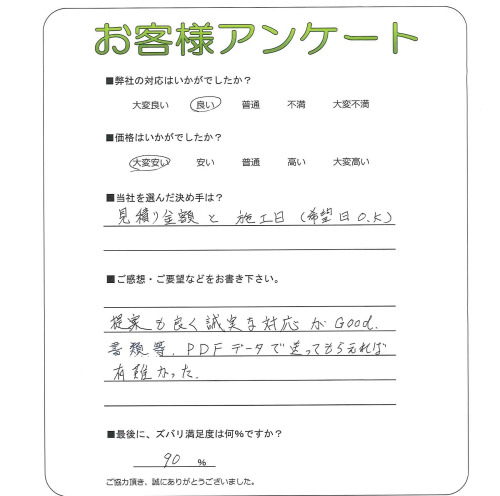 お客様アンケート
■弊社の対応はいかがでしたか？
大変良い 良い 普通 不満 大変不満
■価格はいかがでしたか？
大変安い 安い 普通 高い 大変高い
■当社を選んだ決め手は？
見積り金額と 施工日 (希望日O.K)
■ご感想・ご要望などをお書き下さい。
提案も良く誠実な対応がGood.
書類等、PDFデータで送ってもらえれば
有難かった.
■最後に、ズバリ満足度は何％ですか？
90 ％
ご協力頂き、誠にありがとうございました。